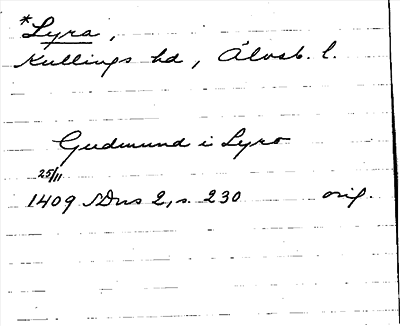 *Lyra,
Kullings hd, Älvsb. l.
Gudmund i Lyro
25/11
1409 SDns 2, s. 230 orig.